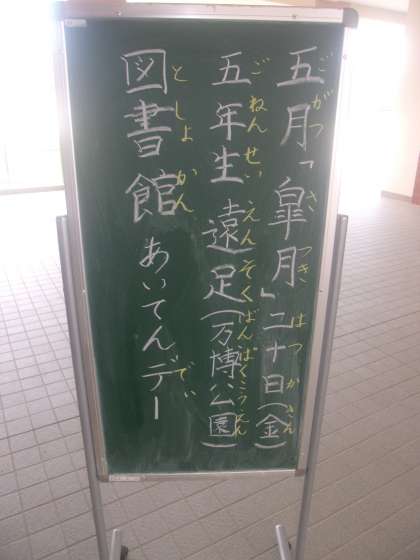 五月「皐月」二十日(金)
ごがつ さつき はつか きん
五年生 遠足(万博公園)
ごねんせい えんそく ばんぱくこうえん
図書館 あいてんデー
としょかん でい